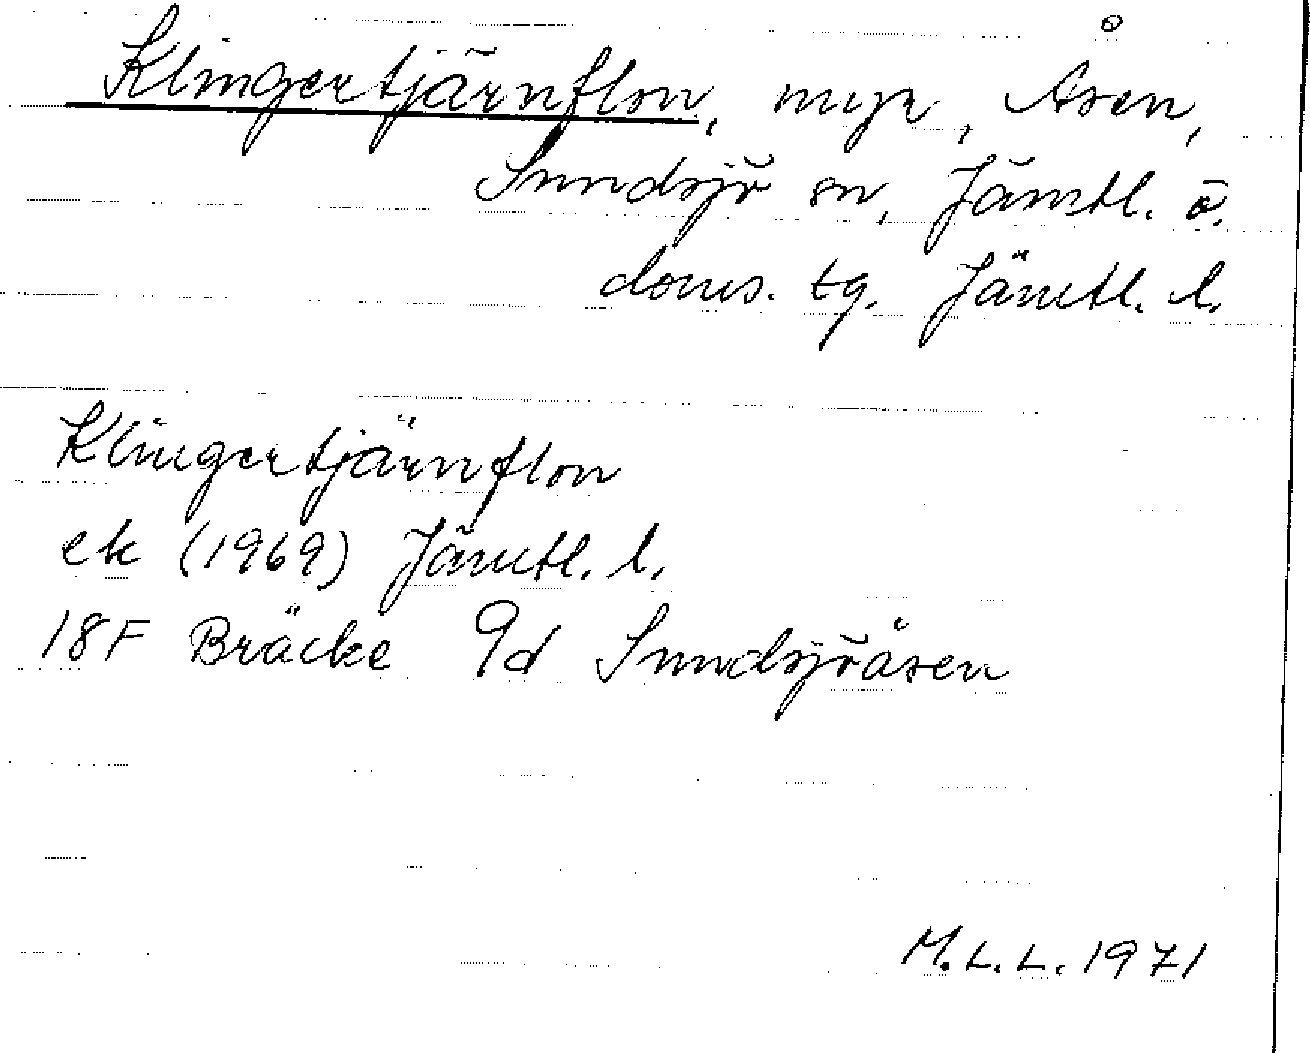 Klingertjärnflon, myr, Åsen,
Sundsjö sn, Jämtl. ö.
doms. tg. Jämtl. l.
Klingertjärnflon
ek (1969) Jämtl. l.
18F Bräcke 9d Sundsjöåsen
M.L.L. 1971